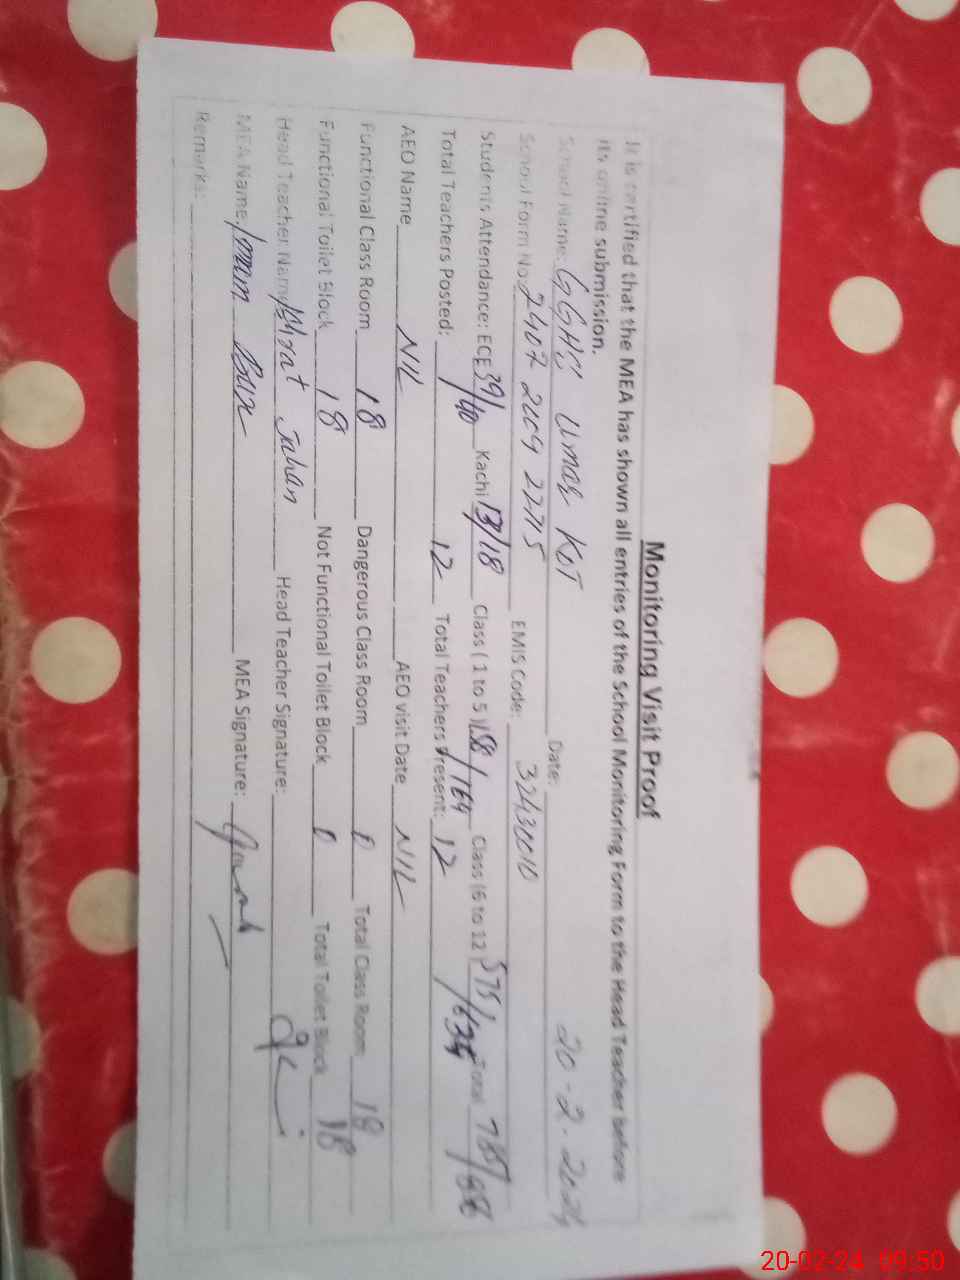 Monitoring Visit Proof
It is certified that the MEA has shown all entries of the School Monitoring Form to the Head Teacher before
its online submission.
School Name: GGHSS Umar KOT Date: 20-2-2024
School Form No: 2402 2009 22715 EMIS Code: 32430010
Students Attendance: ECE 39/40 Kachi 13/18 Class (1 to 5) 158/164 Class (6 to 12) 575/634 Total 785/856
Total Teachers Posted: 12 Total Teachers Present: 12
AEO Name NIL AEO visit Date NIL
Functional Class Room 18 Dangerous Class Room 0 Total Class Room 18
Functional Toilet Block 18 Not Functional Toilet Block 0 Total Toilet Block 18
Head Teacher Name Jahan Head Teacher Signature:
MEA Name: Imam Bux MEA Signature:
Remarks:
20-02-24 09:50